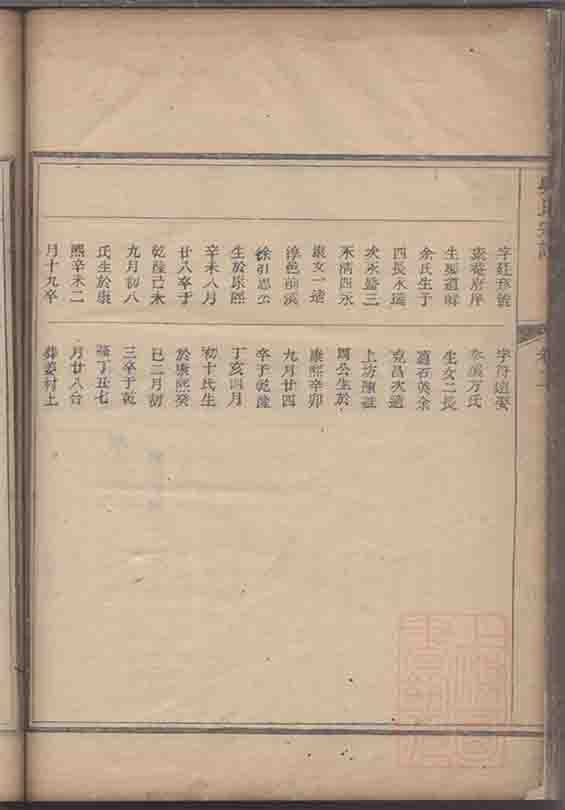 氏宗譜
字廷珍號
庵府庠
生娶道峰
余氏生子
四長永遠
次永盛三
永清四永
康女一適
淳邑前溪
徐引思公
生於康熙
辛未八月
廿八卒于
乾隆己未
九月初八
氏生於康
熙辛未二
月十九卒
字符遠娶
溪方氏
生女二長
適石英余
克昌次適
上坊陳誌
周公生於
康熙辛卯
九月廿四
卒于乾隆
丁亥四月
初十氏生
於康熙癸
巳二月初
三卒于乾
隆丁丑七
月廿八合
葬姜村土